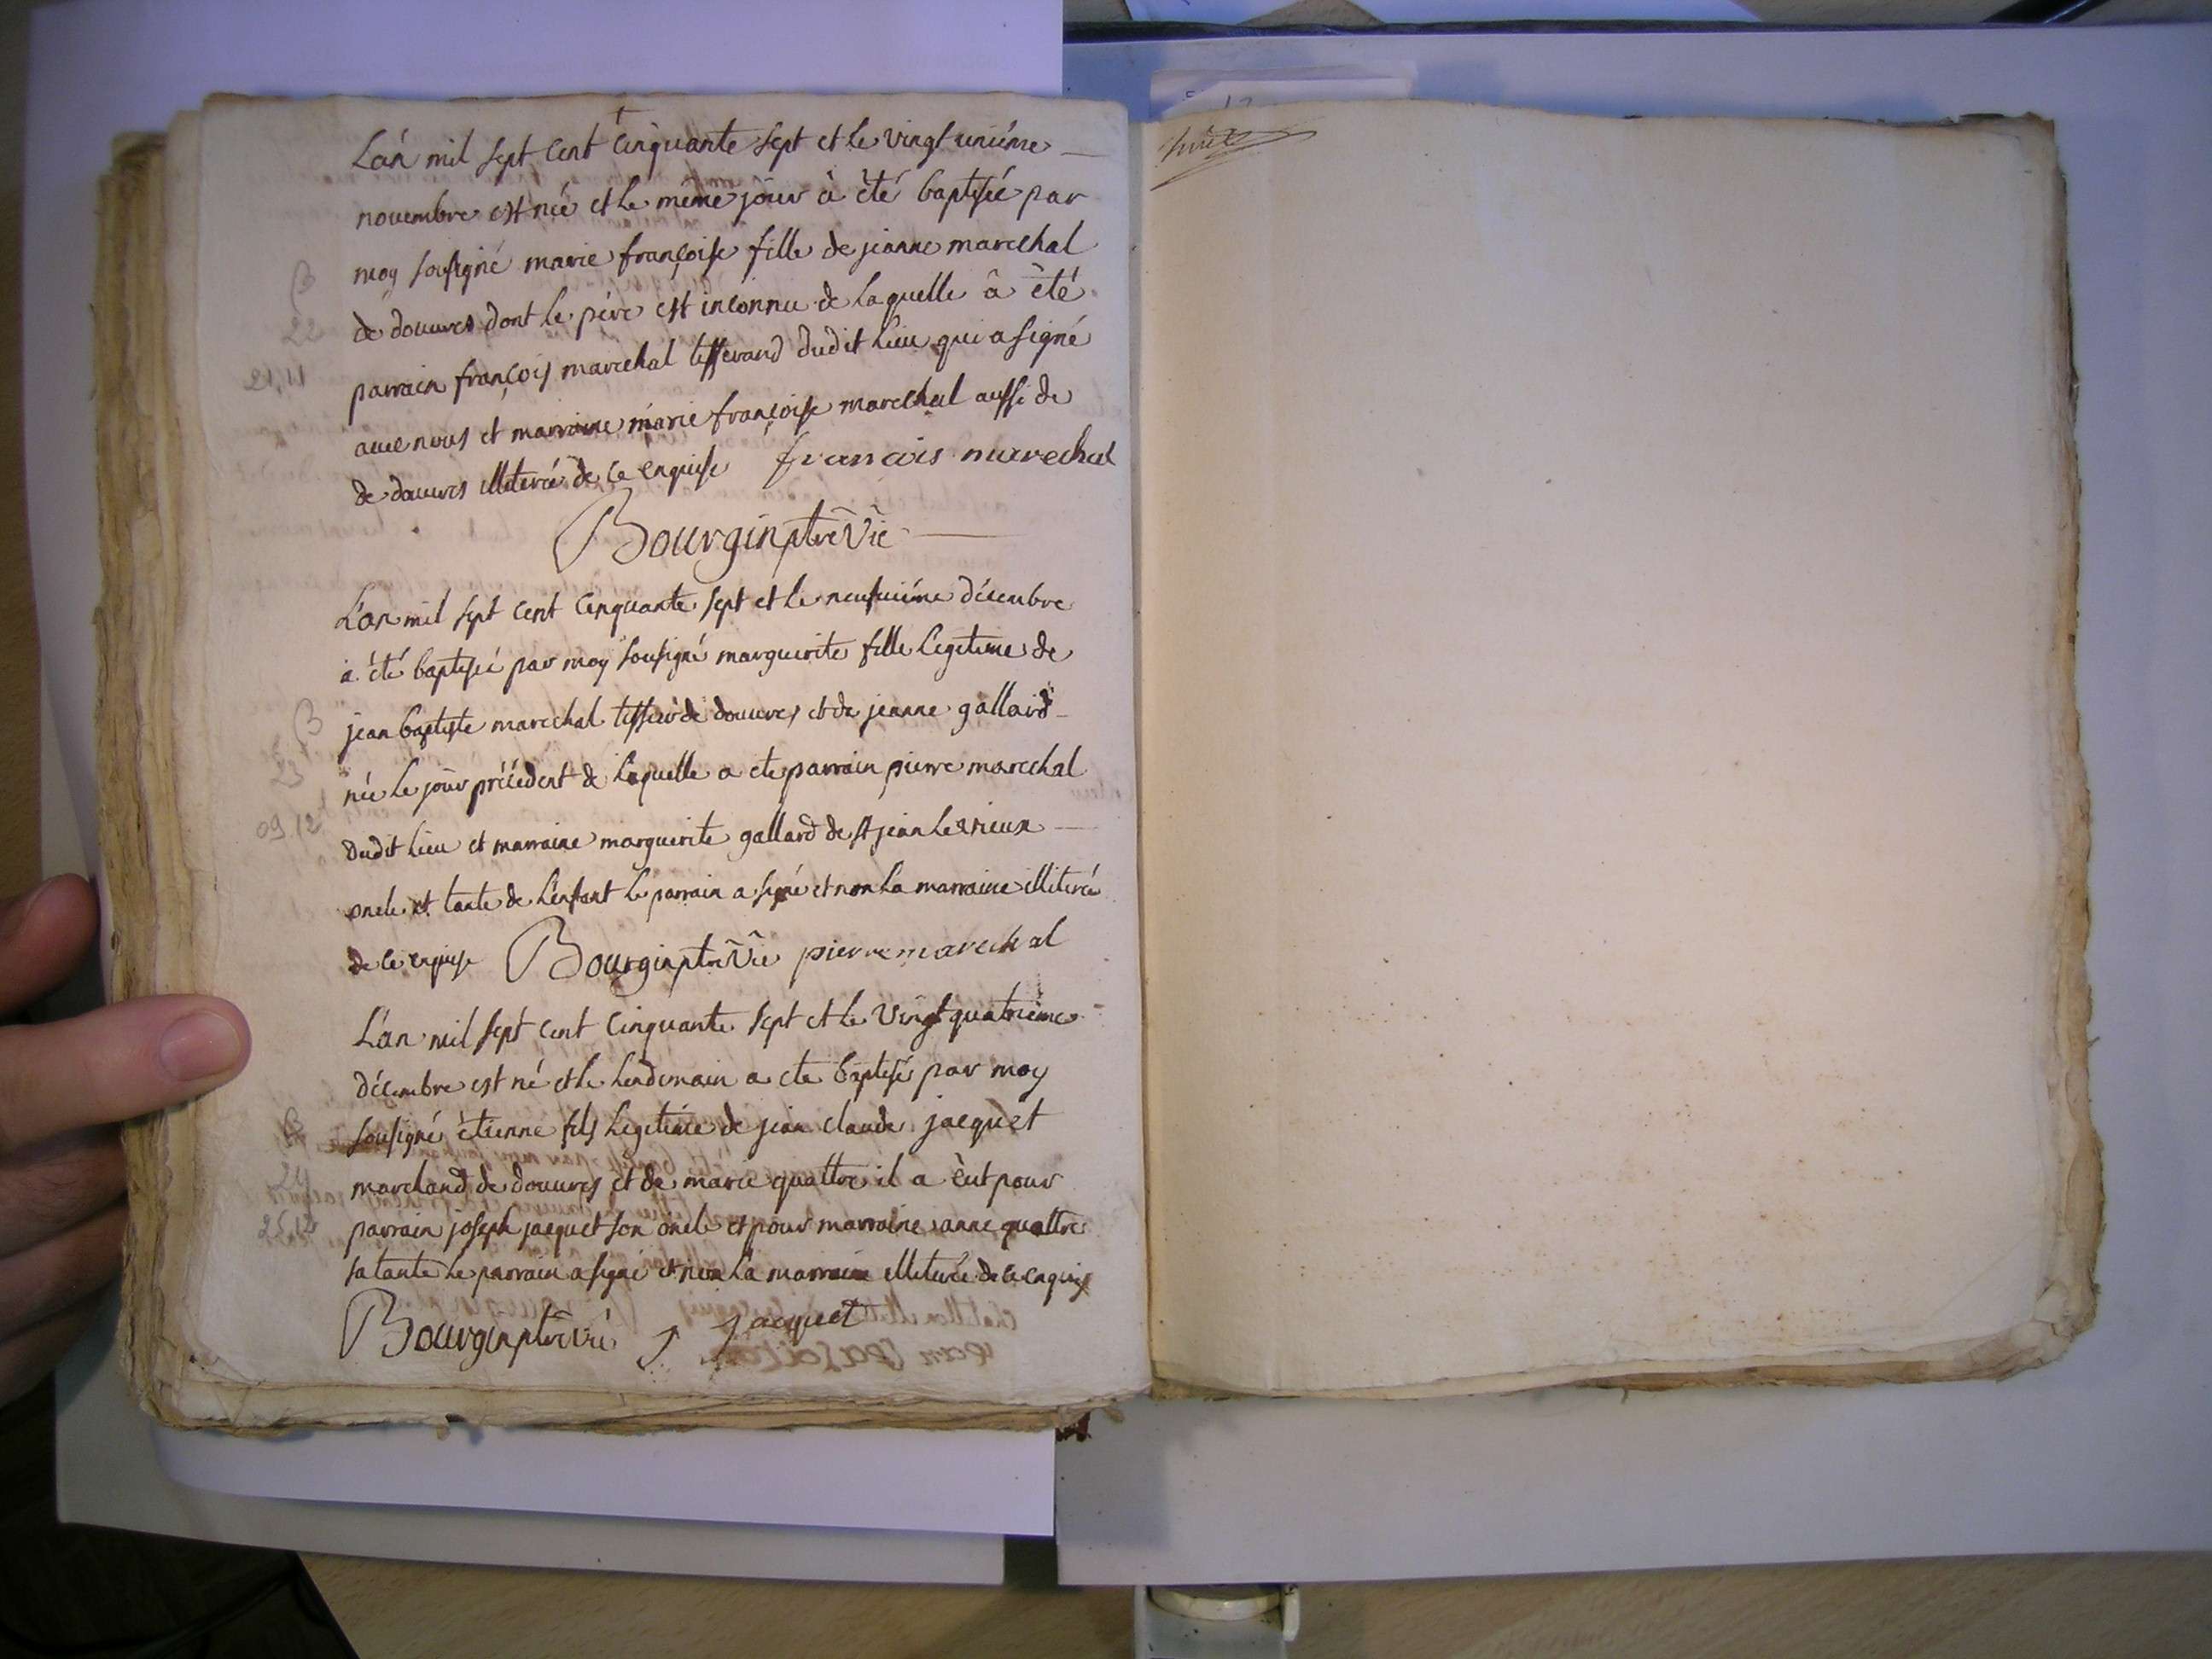 L'an mil sept cent cinquante sept et le vingt uniéme
novembre est née et le même jour à été baptisée par
moy sousigné marie françoise fille de jeanne marechal
B
de douvres dont le père est inconnu de laquelle à été
22
parrain françois marechal tisserand dudit lieu qui a signé
21.11
avec nous et marraine marie françoise marechal aussi de
de douvres illiterée de ce enquise francois marechal
Bourgin ptre vic
L'an mil sept cent cinquante sept et le neufviéme décembre
à été baptisée par moy sousigné marguerite fille legitime de
B
jean baptiste marechal tisseur de douvres et de jeanne gallard
23
née le jour précédent de laquelle a ete parrain pierre marechal
09.12
dudit lieu et marraine marguerite gallard de st jean le vieux
oncle et tante de l'enfant le parrain a signé et non la marraine illiterée
de ce enquise Bourgin ptre vic pierre marechal
L'an mil sept cent cinquante sept et le vingt quatriéme
décembre est né et le lendemain a ete baptisé par moy
B
sousigné étienne fils legitime de jean claude jacquet
24
marchand de douvres et de marie quattre il a eut pour
25.12
parrain joseph jacquet son oncle et pour marraine anne quattre
sa tante le parrain a signé et non la marraine illiterée de ce enquise
Bourgin ptre vic J Jacquet